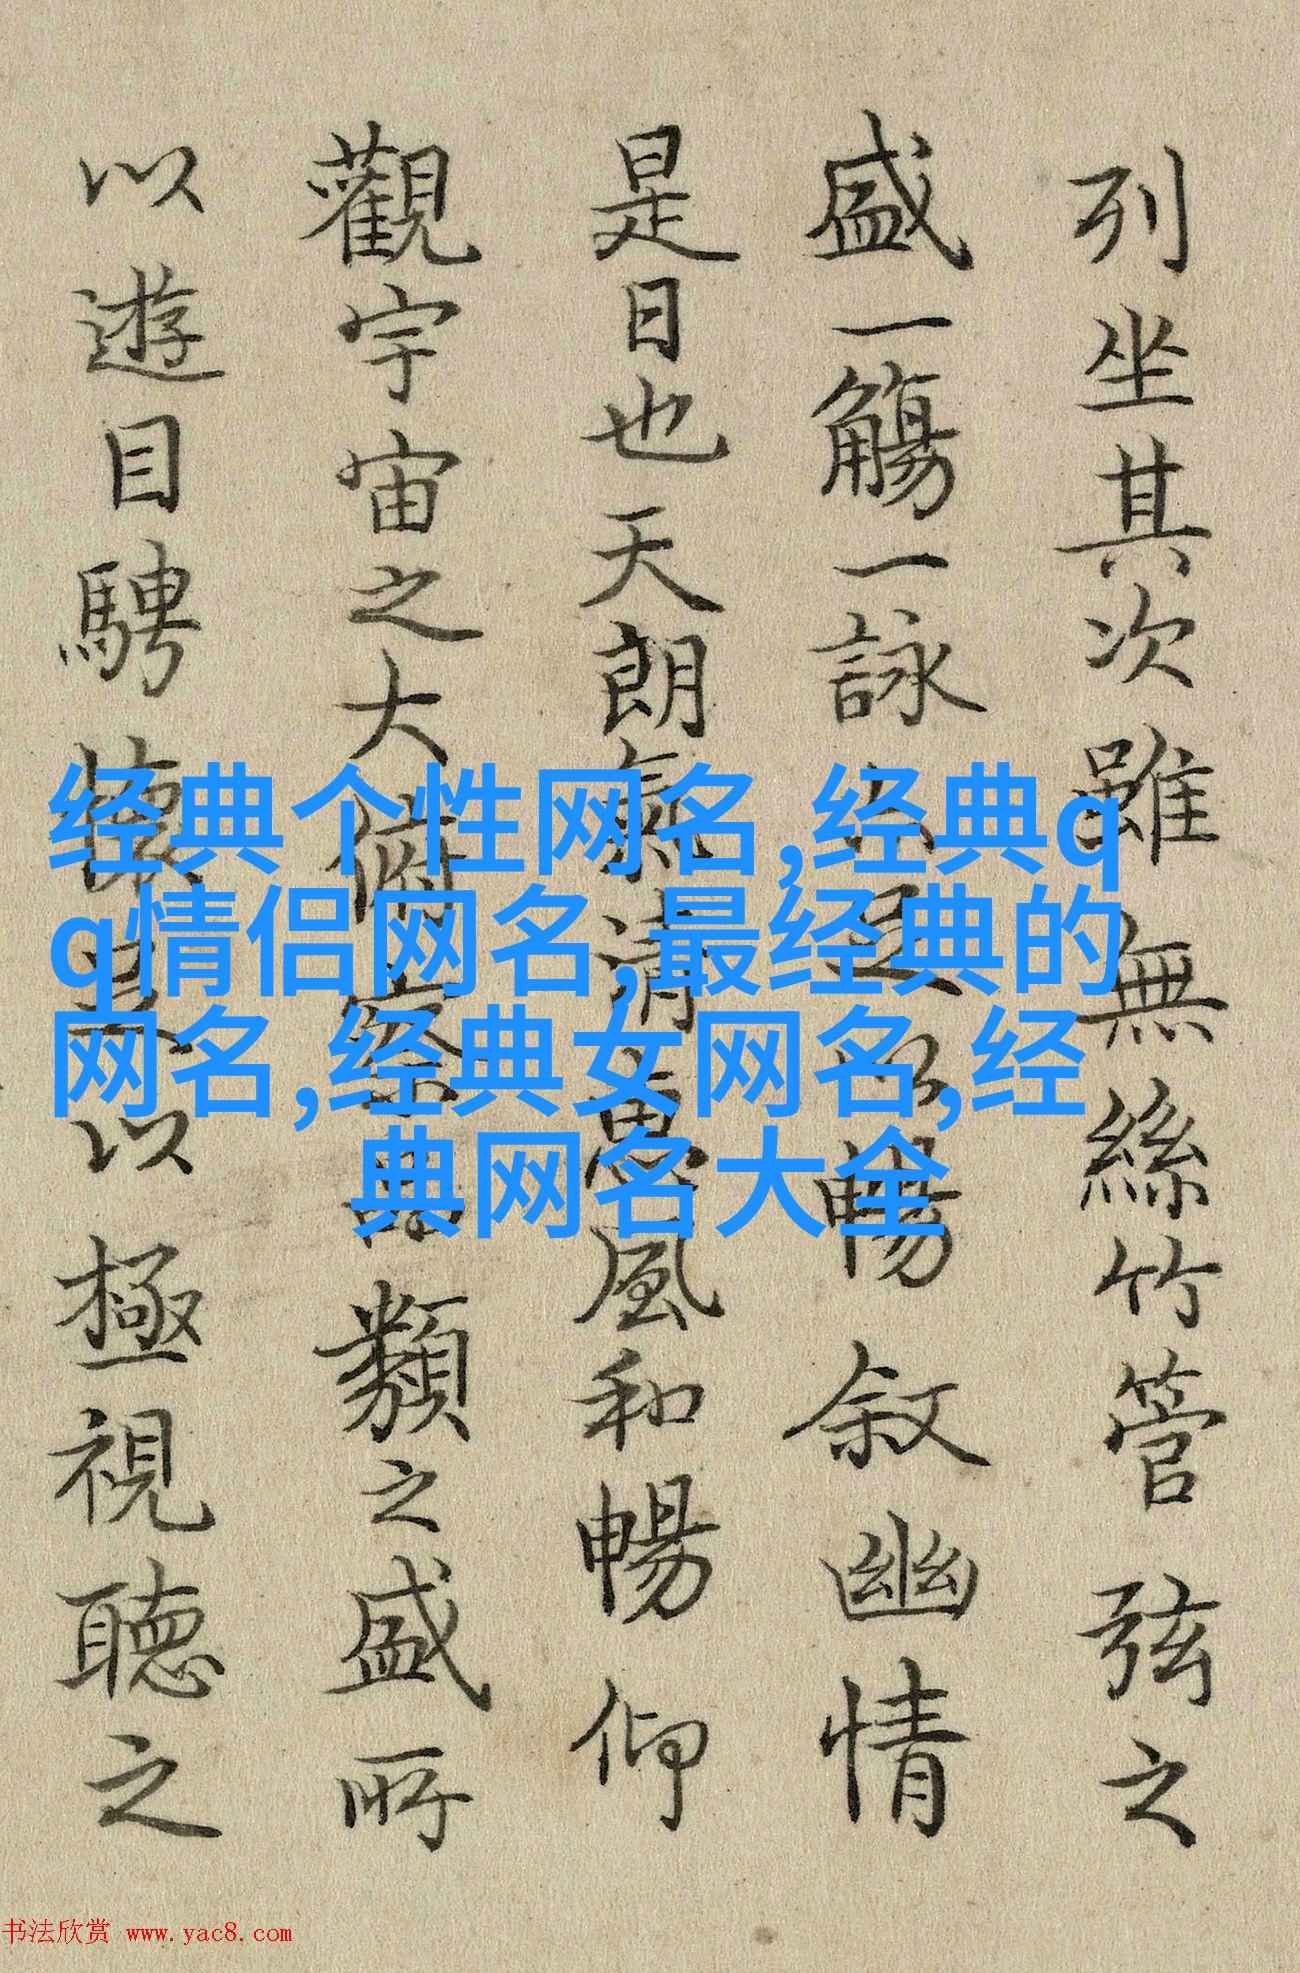 列坐其次雖無絲竹管弦之
盛一觴一詠亦足以暢叙幽情
是日也天朗氣清惠風和暢仰
觀宇宙之大俯察品類之盛所
以遊目騁懷足以極視聽之
经典个性网名,经典q
q情侣网名,最经典的
网名,经典女网名,经
典网名大全
书法欣赏 www.yac8.com